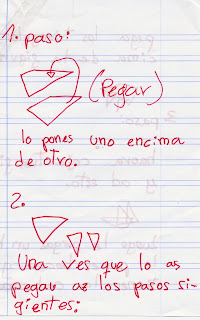 1. paso:
(Pegar)
lo pones uno encima
de otro.
2.
Una ves que lo as
pegau az los pasos si-
gientes: